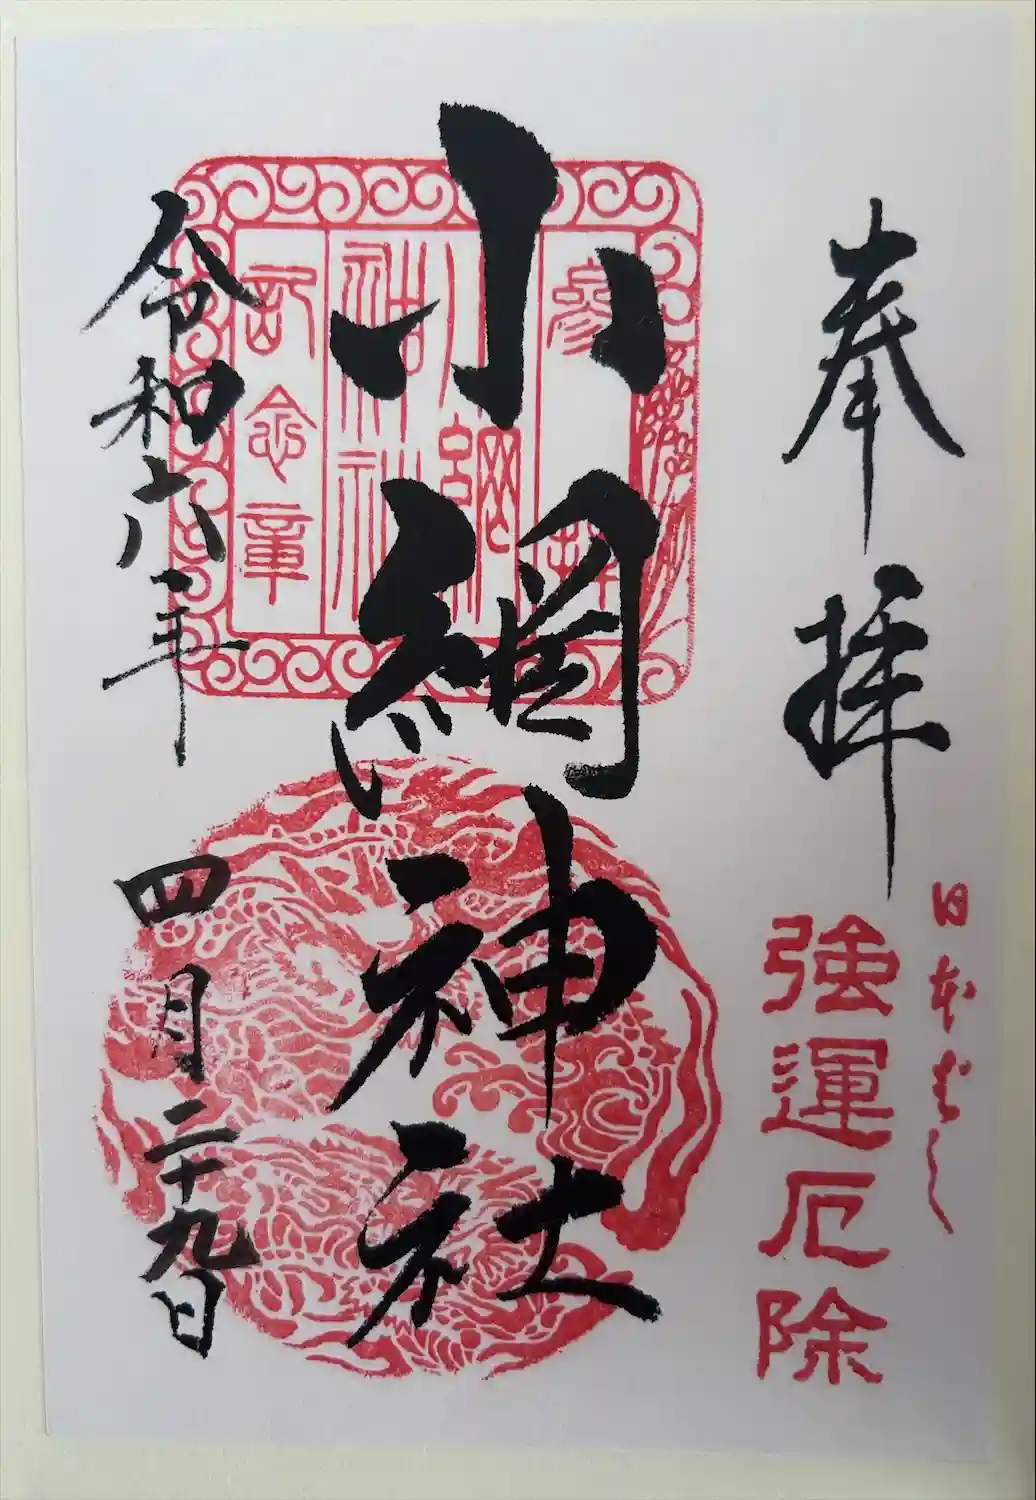 奉拝
日本ばし
強運厄除
小網神社
参拝
小網
神社
記念章
令和六年
四月二十九日